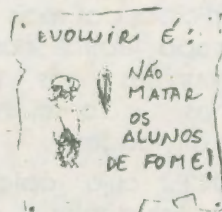 EVOLUIR É:
NÃO
MATAR
OS
ALUNOS
DE FOME!